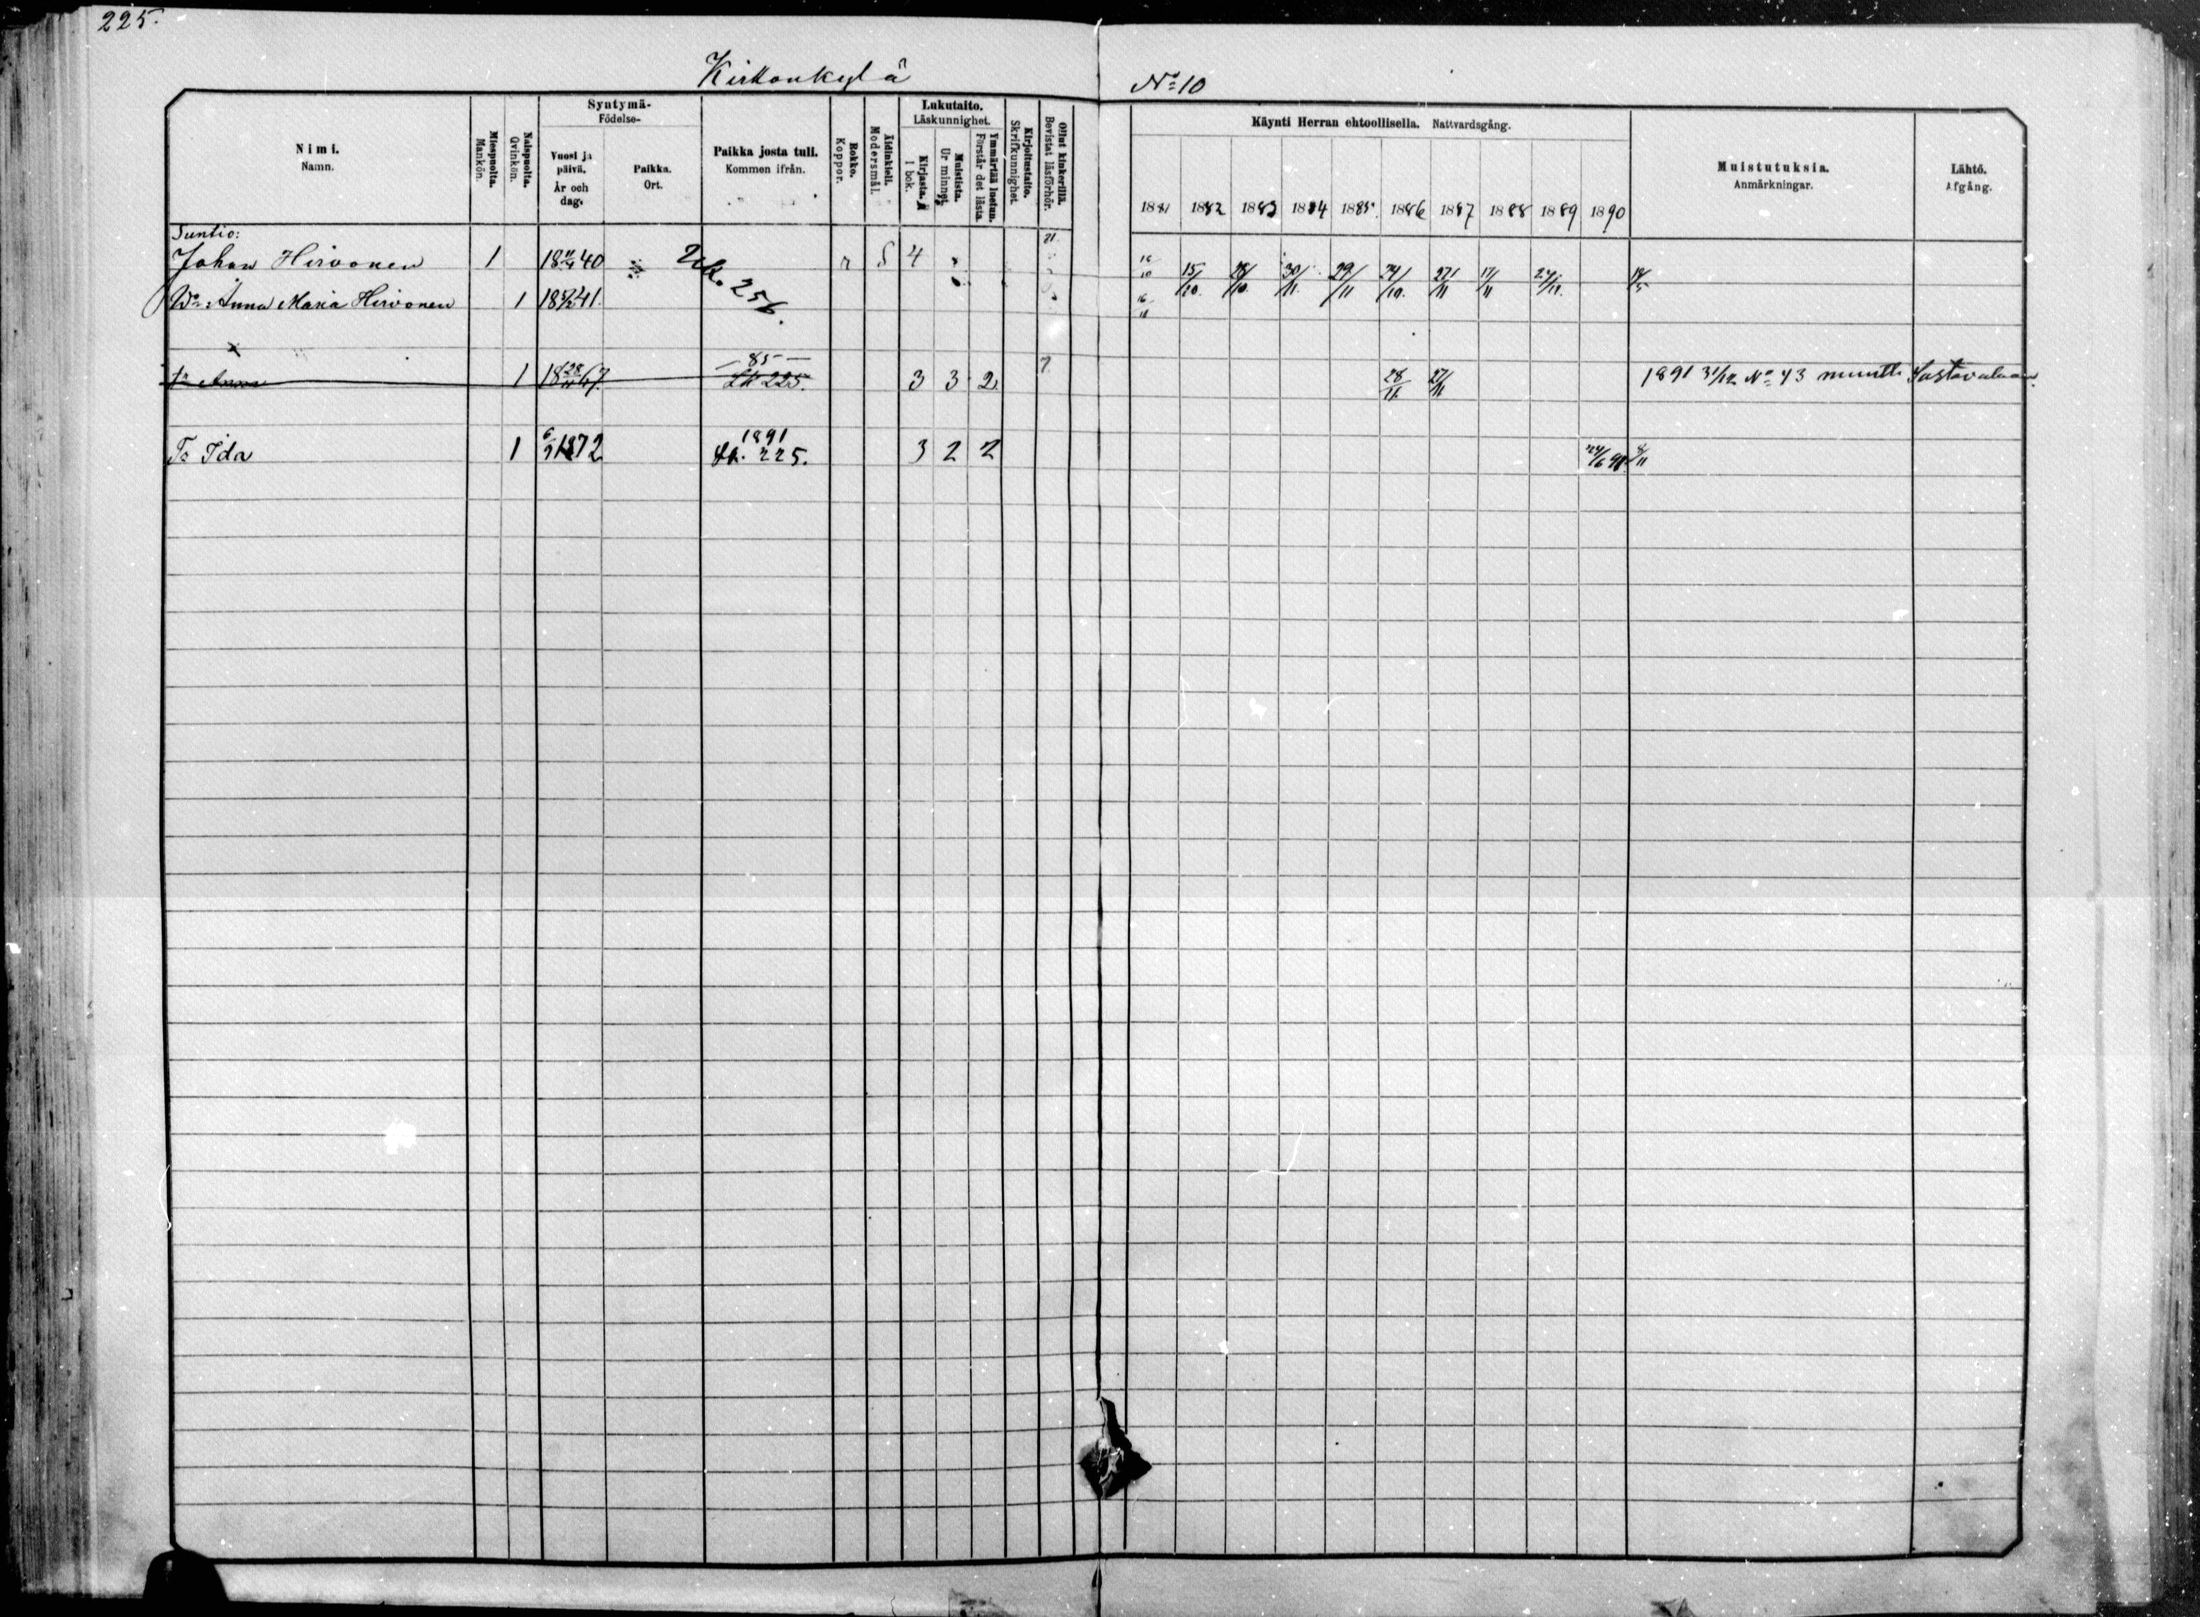 225.
Kirkonkylä
No 10
Nimi.
Namn.
Miespuolta.
Mankön.
Naispuolta.
Qvinkön.
Syntymä-
Födelse-
Vuosi ja
päivä.
År och
dag.
Paikka.
Ort.
Paikka josta tuli.
Kommen ifrån.
Rokko.
Koppor.
Äidinkieli.
Modersmål.
Lukutaito.
Läskunnighet.
Kirjasta.
I bok.
Muistista.
Ur minnet.
Ymmärtää luetun.
Förstår det lästa.
Kirjoitustaito.
Skrifkunnighet.
Ollut kinkerillä.
Bevistat läsförhör.
Käynti Herran ehtoollisella. Nattvardsgång.
1881 1882 1883 1884 1885 1886 1887 1888 1889 1890
Muistutuksia.
Anmärkningar.
Lähtö.
Afgång.
Suntio:
Johan Hirvonen 1 18 40 r S 4 15/10 28/10 30/11 29/11 24/10 27/11 17/11
Wo: Anna Maria Hirvonen 1 18 41.
256.
85
Anna 1 18 28/11 67. Lk 225. 3 3 2 28/11 27/11 1891 31/12 No 43 muutti
1891
Tr Ida 1 6/9 1872 Lk. 225. 3 2 2